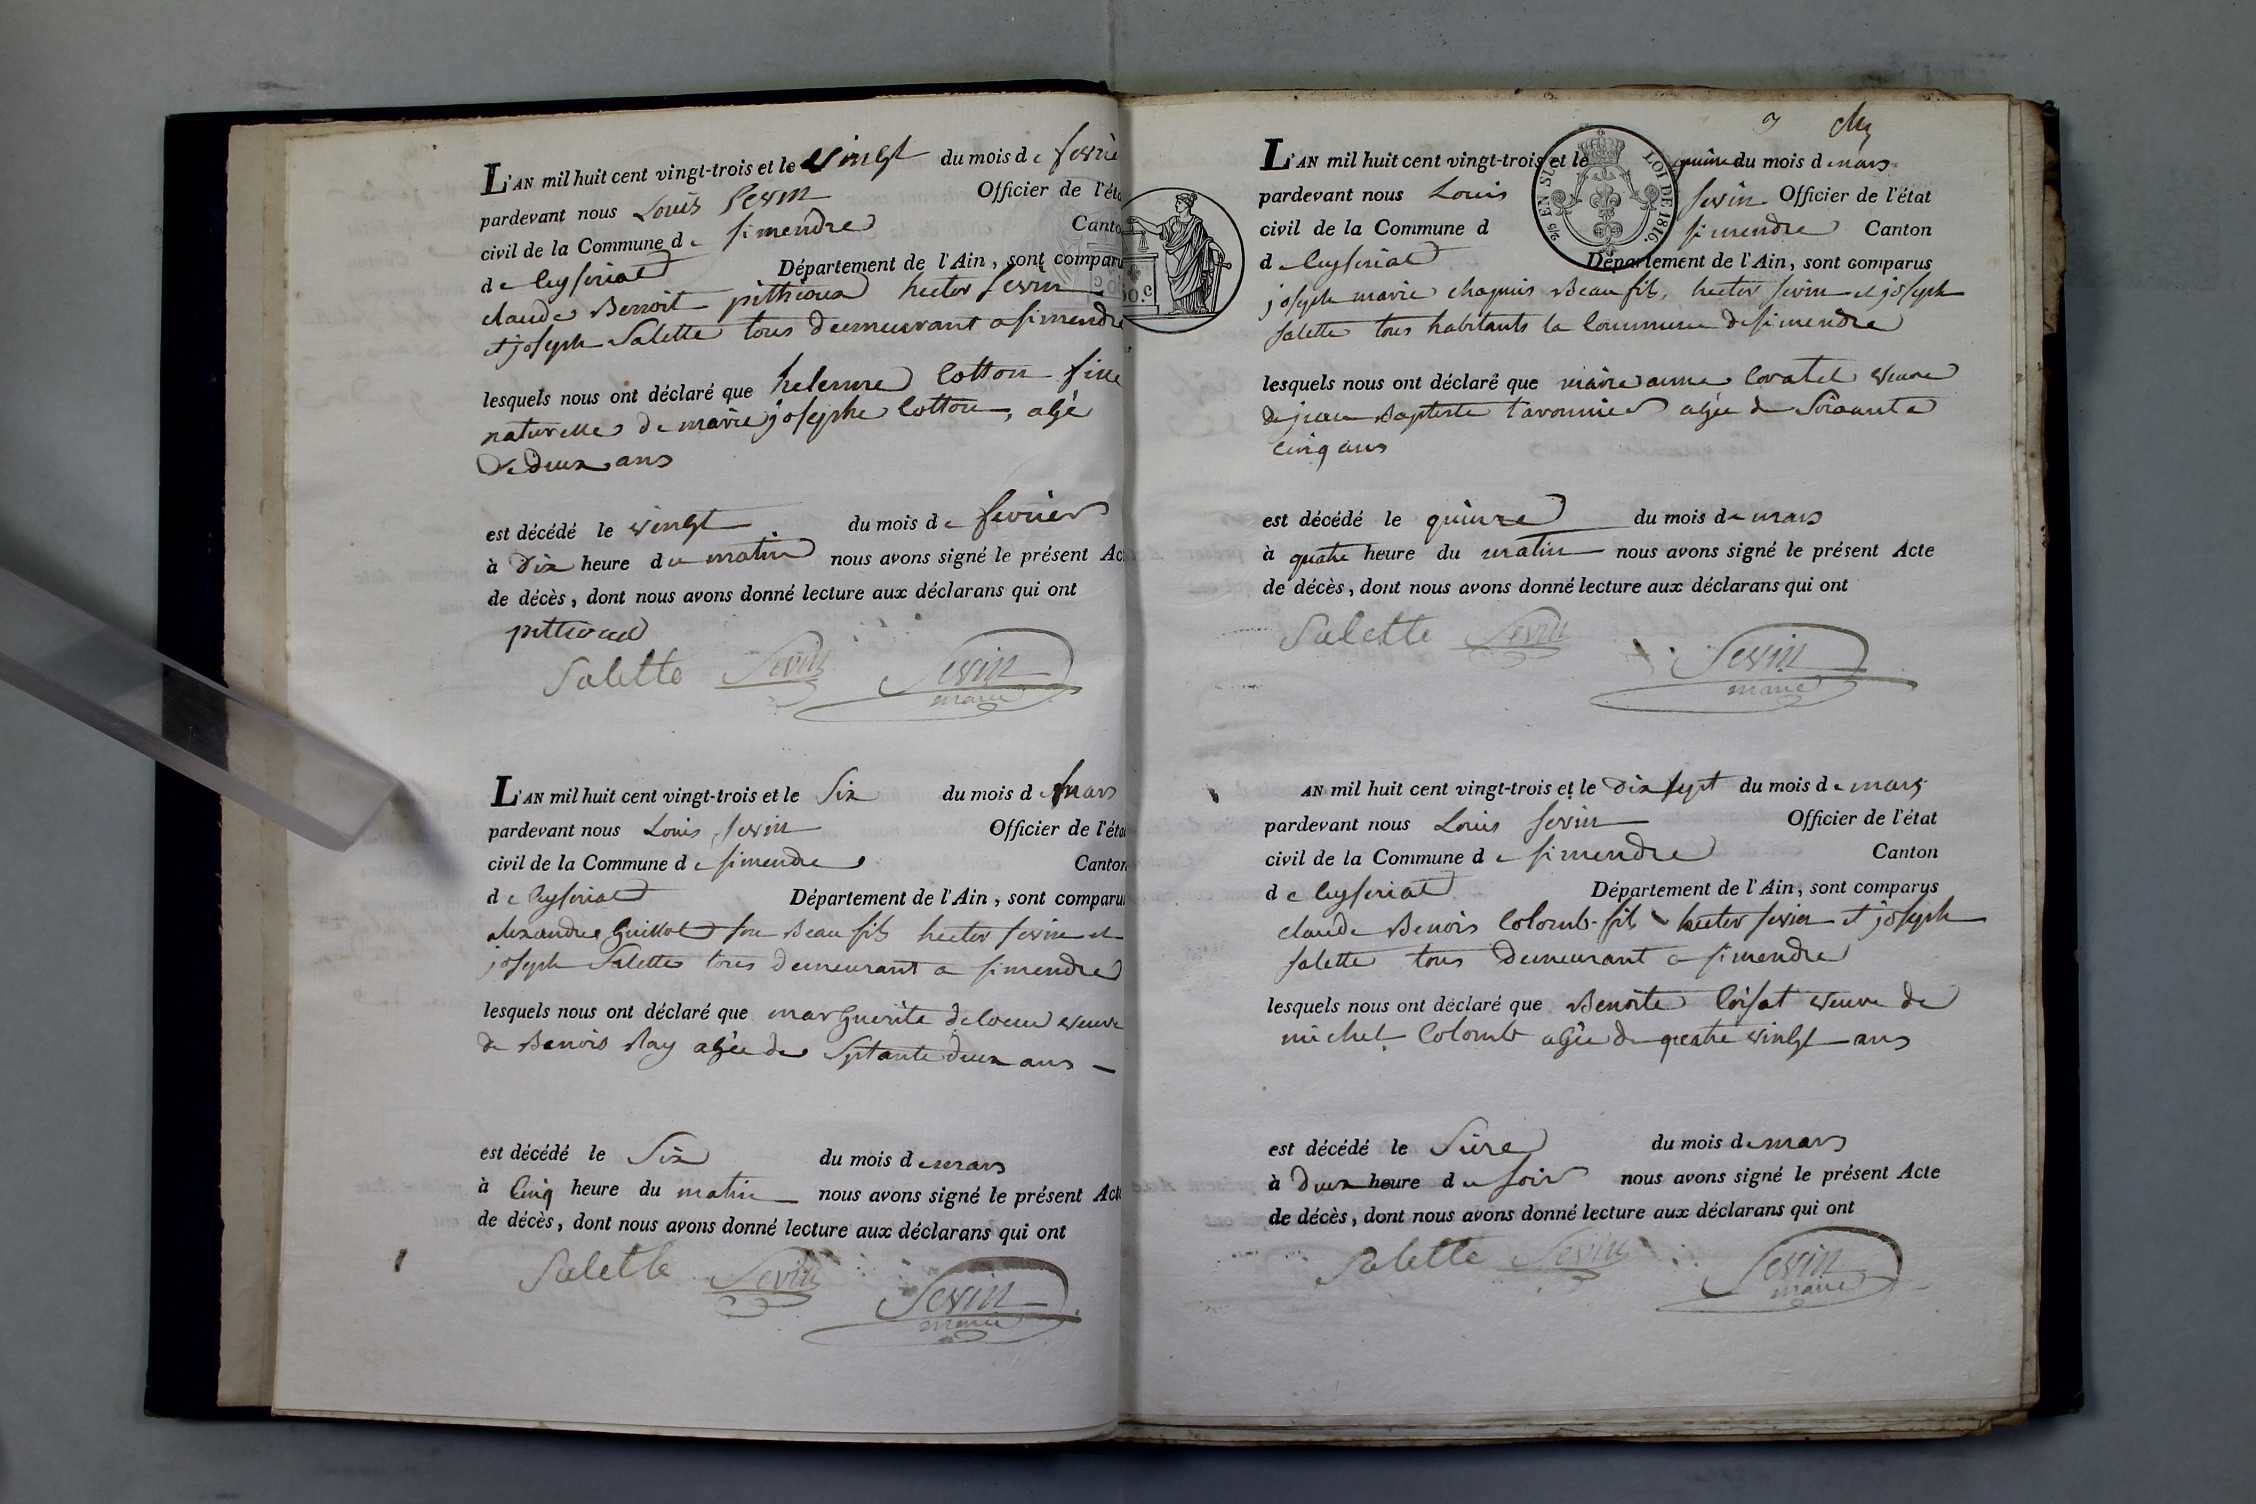 L'AN mil huit cent vingt-trois et le vingt du mois de fevrie
pardevant nous Louis Sevin Officier de l'éta
civil de la Commune de simendre Canto
de Ceyseriat Département de l'Ain, sont comparu
claude Benoit pithioud hector sevin
et joseph Salette tous demeurant a simendre
lesquels nous ont déclaré que helenne Cotton fille
naturelle de marie josephe Cotton, agé
De deux ans
est décédé le vingt du mois de fevrier
à dix heure du matin nous avons signé le présent Ac
de décès, dont nous avons donné lecture aux déclarans qui ont
pithioud
Salette Sevin Sevin
maire
L'AN mil huit cent vingt-trois et le Six du mois de mars
pardevant nous Louis sevin Officier de l'éta
civil de la Commune de simendre Canton
de Ceyseriat Département de l'Ain, sont comparu
alexandre Guillot son Beau fils hector sevin et
joseph Salette tous demeurant a simendre
lesquels nous ont déclaré que marguerite veuve
de Benois Ray agée de Septante deux ans
est décédé le Six du mois de mars
à Cinq heure du matin nous avons signé le présent Acte
de décès, dont nous avons donné lecture aux déclarans qui ont
Salette Sevin Sevin
maire
3
L'AN mil huit cent vingt-trois et le quinze du mois de mars
pardevant nous Louis sevin Officier de l'état
civil de la Commune d simendre Canton
de Ceyseriat Département de l'Ain, sont comparus
joseph marie chapuis Beau fils, hector sevin et joseph
salette tous habitants la Commune de simendre
lesquels nous ont déclaré que marie anne Coratel veuve
de jean Baptiste tavonnier agée de Soixante
Cinq ans
est décédé le quinze du mois de mars
à quatre heure du matin nous avons signé le présent Acte
de décès, dont nous avons donné lecture aux déclarans qui ont
Salette Sevin Sevin
maire
EN SUS LOI DE 1816.
AN mil huit cent vingt-trois et le dix sept du mois de mars
pardevant nous Louis sevin Officier de l'état
civil de la Commune de simendre Canton
de Ceyseriat Département de l'Ain, sont comparus
claude Benois Colomb fils hector sevin et joseph
salette tous Demeurant a simendre
lesquels nous ont déclaré que Benoite Loisat veuve de
michel Colomb agée de quatre vingt ans
est décédé le Sèize du mois de mars
à Deux heure du soir nous avons signé le présent Acte
de décès, dont nous avons donné lecture aux déclarans qui ont
Salette Sevin Sevin
maire